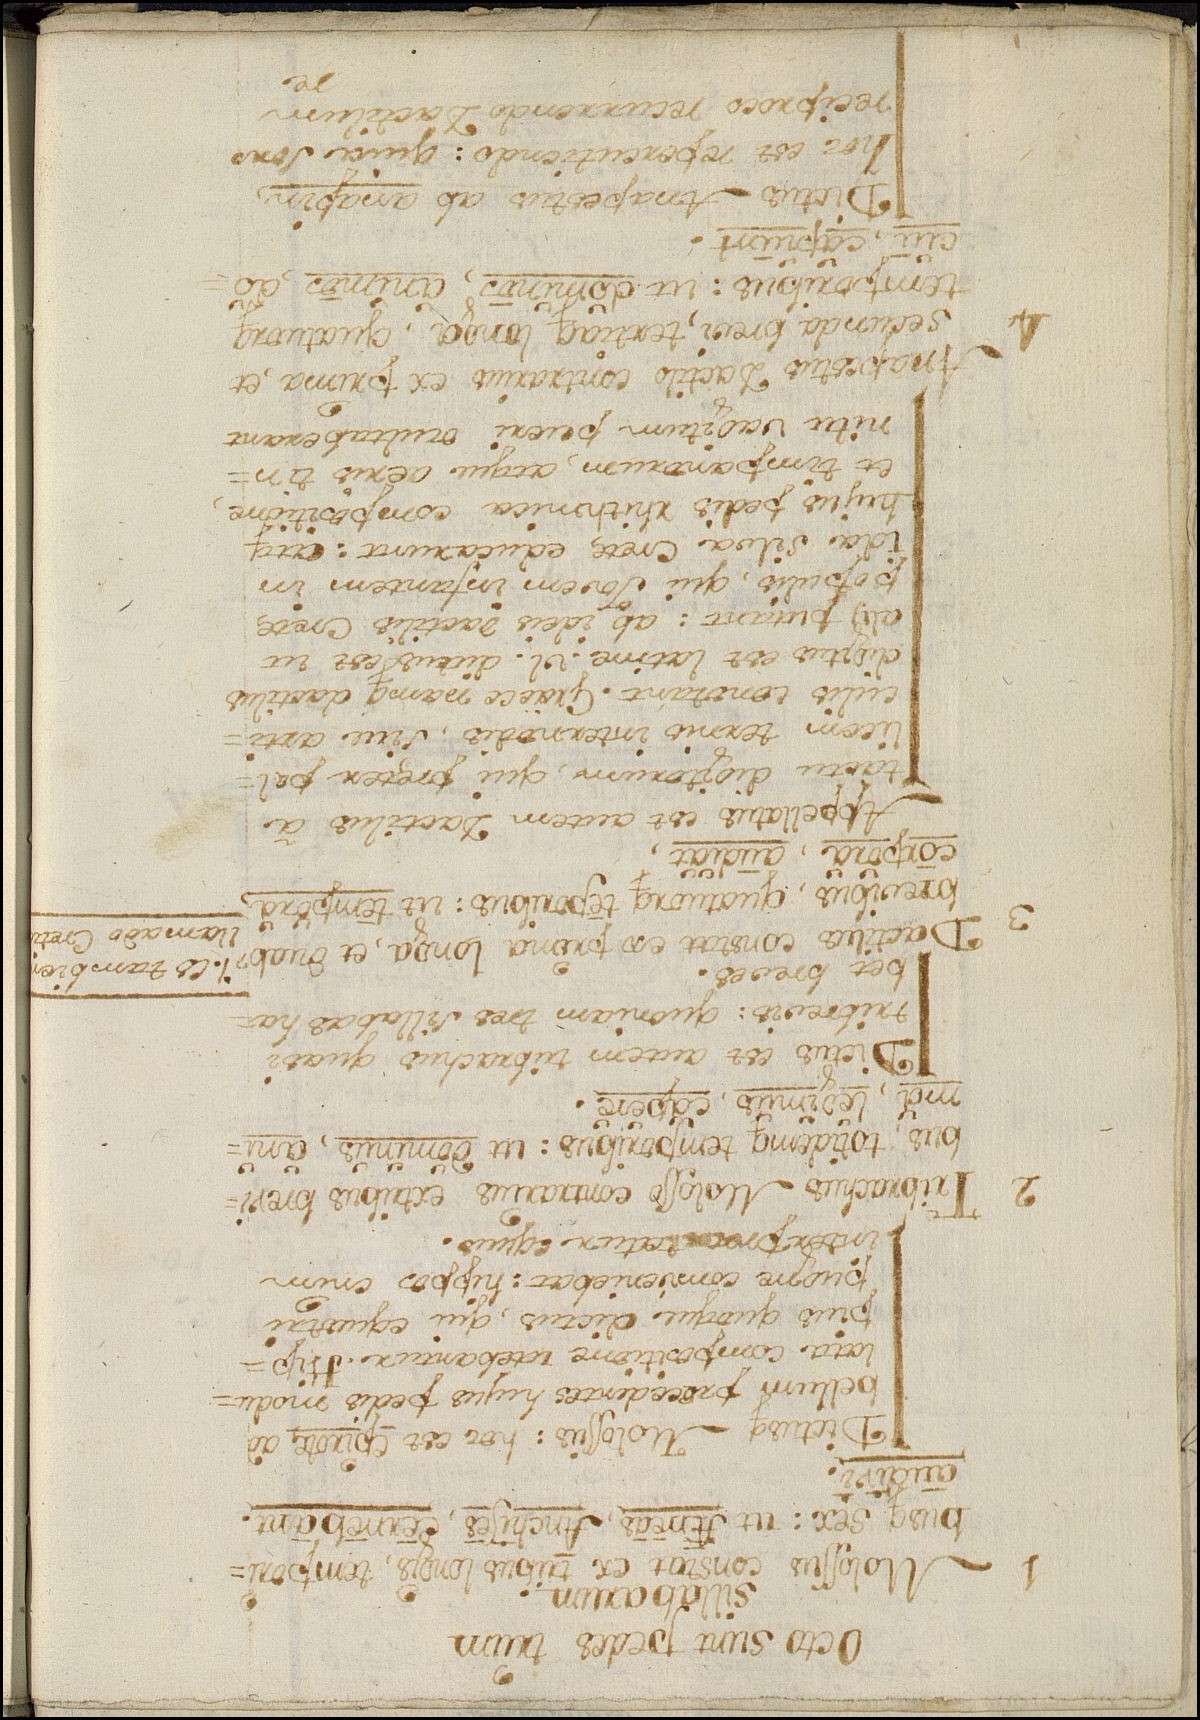 Octo sunt pedes trium
sillabarum.
1 Molossus constat ex tribus longis, tempori=
busq sex: ut Æneas, Anchises, cernebant.
audiri.
Dictusq Molossus: hoc est Epirotæ, ad
bellum procedentes hujus pedis modu=
lata compositione utebantur. Hip=
pius quoque dictus, qui equestri
pugne conveniebat: hippos enim
interpretatur equus.
2 Tribrachus Molosso contrarius ex tribus brevi=
bus, totidemq temporibus: ut dominus, ani=
ma, legimus, capere.
Dictus est autem tribrachus quasi
tribrevis: quoniam tres sillabas ha=
bet breves.
3 Dactilus constat ex prima longa, et duab9
brevibus, quatuorq teporibus: ut tempora,
corpora, audiat,
i. es tambien
llamado Creti
Appellatus est autem Dactilus â
tactu digitorum, qui preter pol=
licem ternis internodis, sive arti=
culis constant. Grece namq dactilus
digitus est latine. Vl. dictus est ut
alij putant: ab ideis dactilis Cretę
populis, qui Jovem infantem in
Ida silva Cretę educarunt: atq
hujus pedis rhithmica compositione,
et timpanorum, atque aeris tin=
nitu vagitum pueri occultaberant
4 Anapestus Dactilo contrarius ex prima, et
secunda brevi, tertiaq longa, quatuorq
temporibus: ut dominos, animos, ab=
capiunt.
Dictus Anapestus ab anapin
hoc est repercutiendo: quia sono
reciproco recurrendo Dactilum
re